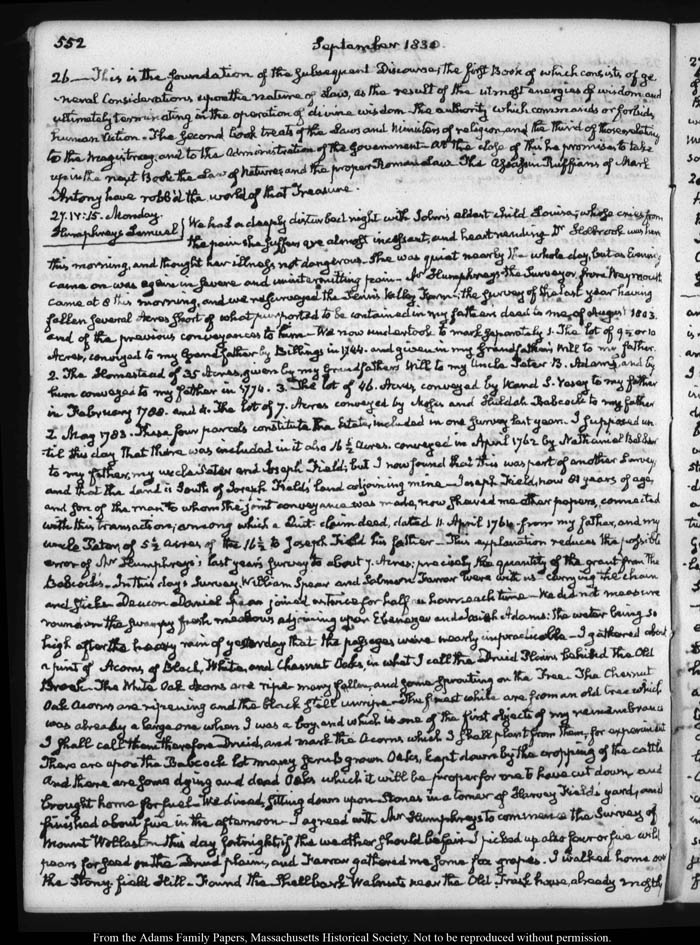 552 September 1830.
26— This is the foundation of the subsequent Discourse; the first Book of which consists of ge-
neral Considerations upon the nature of Law, as the result of the utmost energies of wisdom and
ultimately terminating in the operation of divine wisdom the authority which commands or forbids
human action. The second book treats of the Laws and Ministers of religion, and the third of those relating
to the Magistracy, and to the Administration of the Government— At the close of this he promises to take
up in the next Book the Law of Nature, and the proper Roman Law. The Assassin Ruffians of Mark
Antony have robb'd the world of that Treasure.
27. IV:15. Monday.
Humphreys Lemuel
We had a deeply disturbed night with John's eldest child Louisa; whose cries from
the pain she suffers are almost incessant, and heart rending Dr Holbrook was here
this morning, and thought her illness not dangerous. She was quiet nearly the whole day, but as Evening
came on was again in severe and unintermitting pain— Mr Humphreys the Surveyor, from Weymouth
came at 8 this morning, and we resurveyed the Penn's Hill Farm; the survey of the last year having
fallen several Acres short of what purported to be contained in my father's deed to me, of August 1803.
and of the previous conveyances to him— We now undertook to mark separately 1. The lot of 9½ or 10
Acres, conveyed to my Grandfather by Billings in 1744. and given in my Grandfather's Will to my father.
2. The Homestead of 35 Acres, given by my Grandfathers Will to my Uncle Peter B. Adams, and by
him conveyed to my father in 1774. 3. The lot of 46. Acres conveyed by and S. Vesey to my father
in February 1788. and 4. The lot of 7. Acres conveyed by Moses and Huldah Babcock to my father
2. May 1783. These four parcels constitute the Estate, included in one survey last year. I supposed un-
til this day that there was included in it also 16½ Acres. conveyed in April 1762 by Nathaniel
to my father, my uncle Peter and Joseph Field; but I now found that this was part of another Survey,
and that the Land is South of Joseph Field's land adjoining mine— Joseph Field, now 81 years of age,
and son of the man to whom the joint conveyance was made, now shewed me other papers, connected
with this transaction; among which a Quit-claim deed, dated 11. April 1764 from my father, and my
uncle Peter, of 5½ acres of the 16½ to Joseph Field his father— This explanation reduces the possible
error of Mr Humphreys's last year's survey to about 7. Acres; precisely the quantity of the grant from the
Babcocks. In this day's survey, William Spear and Salmon Farrar were with us carrying the chain
and sticks— Deacon Daniel Spear joined us twice for half an hour each time— We did not measure
round on the swampy fresh meadows adjoining upon Ebenezer and Josiah Adams: the water being so
high after the heavy rain of yesterday that the passages were nearly impracticable— I gathered about
a pint of Acorns of Black, White, and Chesnut Oaks, in what I call the Druid Plains behind the Old
Brook— The White Oak Acorns are ripe many fallen, and some sprouting on the Tree— The Chesnut
Oak Acorns are ripening and the black still unripe— The finest white are from an old tree which
was already a large one when I was a boy, and which is one of the first objects of my remembrance
I shall call them therefore Druid, and mark the Acorns which I shall plant from them, for experiment
There are upon the Babcock lot many scrub grown Oaks, kept down by the cropping of the cattle
And there are some dying and dead Oaks which it will be proper for me to have cut down, and
brought home for fuel— We dined, sitting down upon Stones in a corner of Harvey Field's yard, and
finished about five in the afternoon— I agreed with Mr Humphreys to commence the Surveys of
Mount Wollaston this day fortnight, if the weather should be fair— I picked up also four or five wild
pears for seed on the Druid plain, and Farrar gathered me some fox grapes. I walked home over
the Stony field Hill— Found the Shellbark Walnuts near the Old house, already
From the Adams Family Papers, Massachusetts Historical Society. Not to be reproduced without permission.